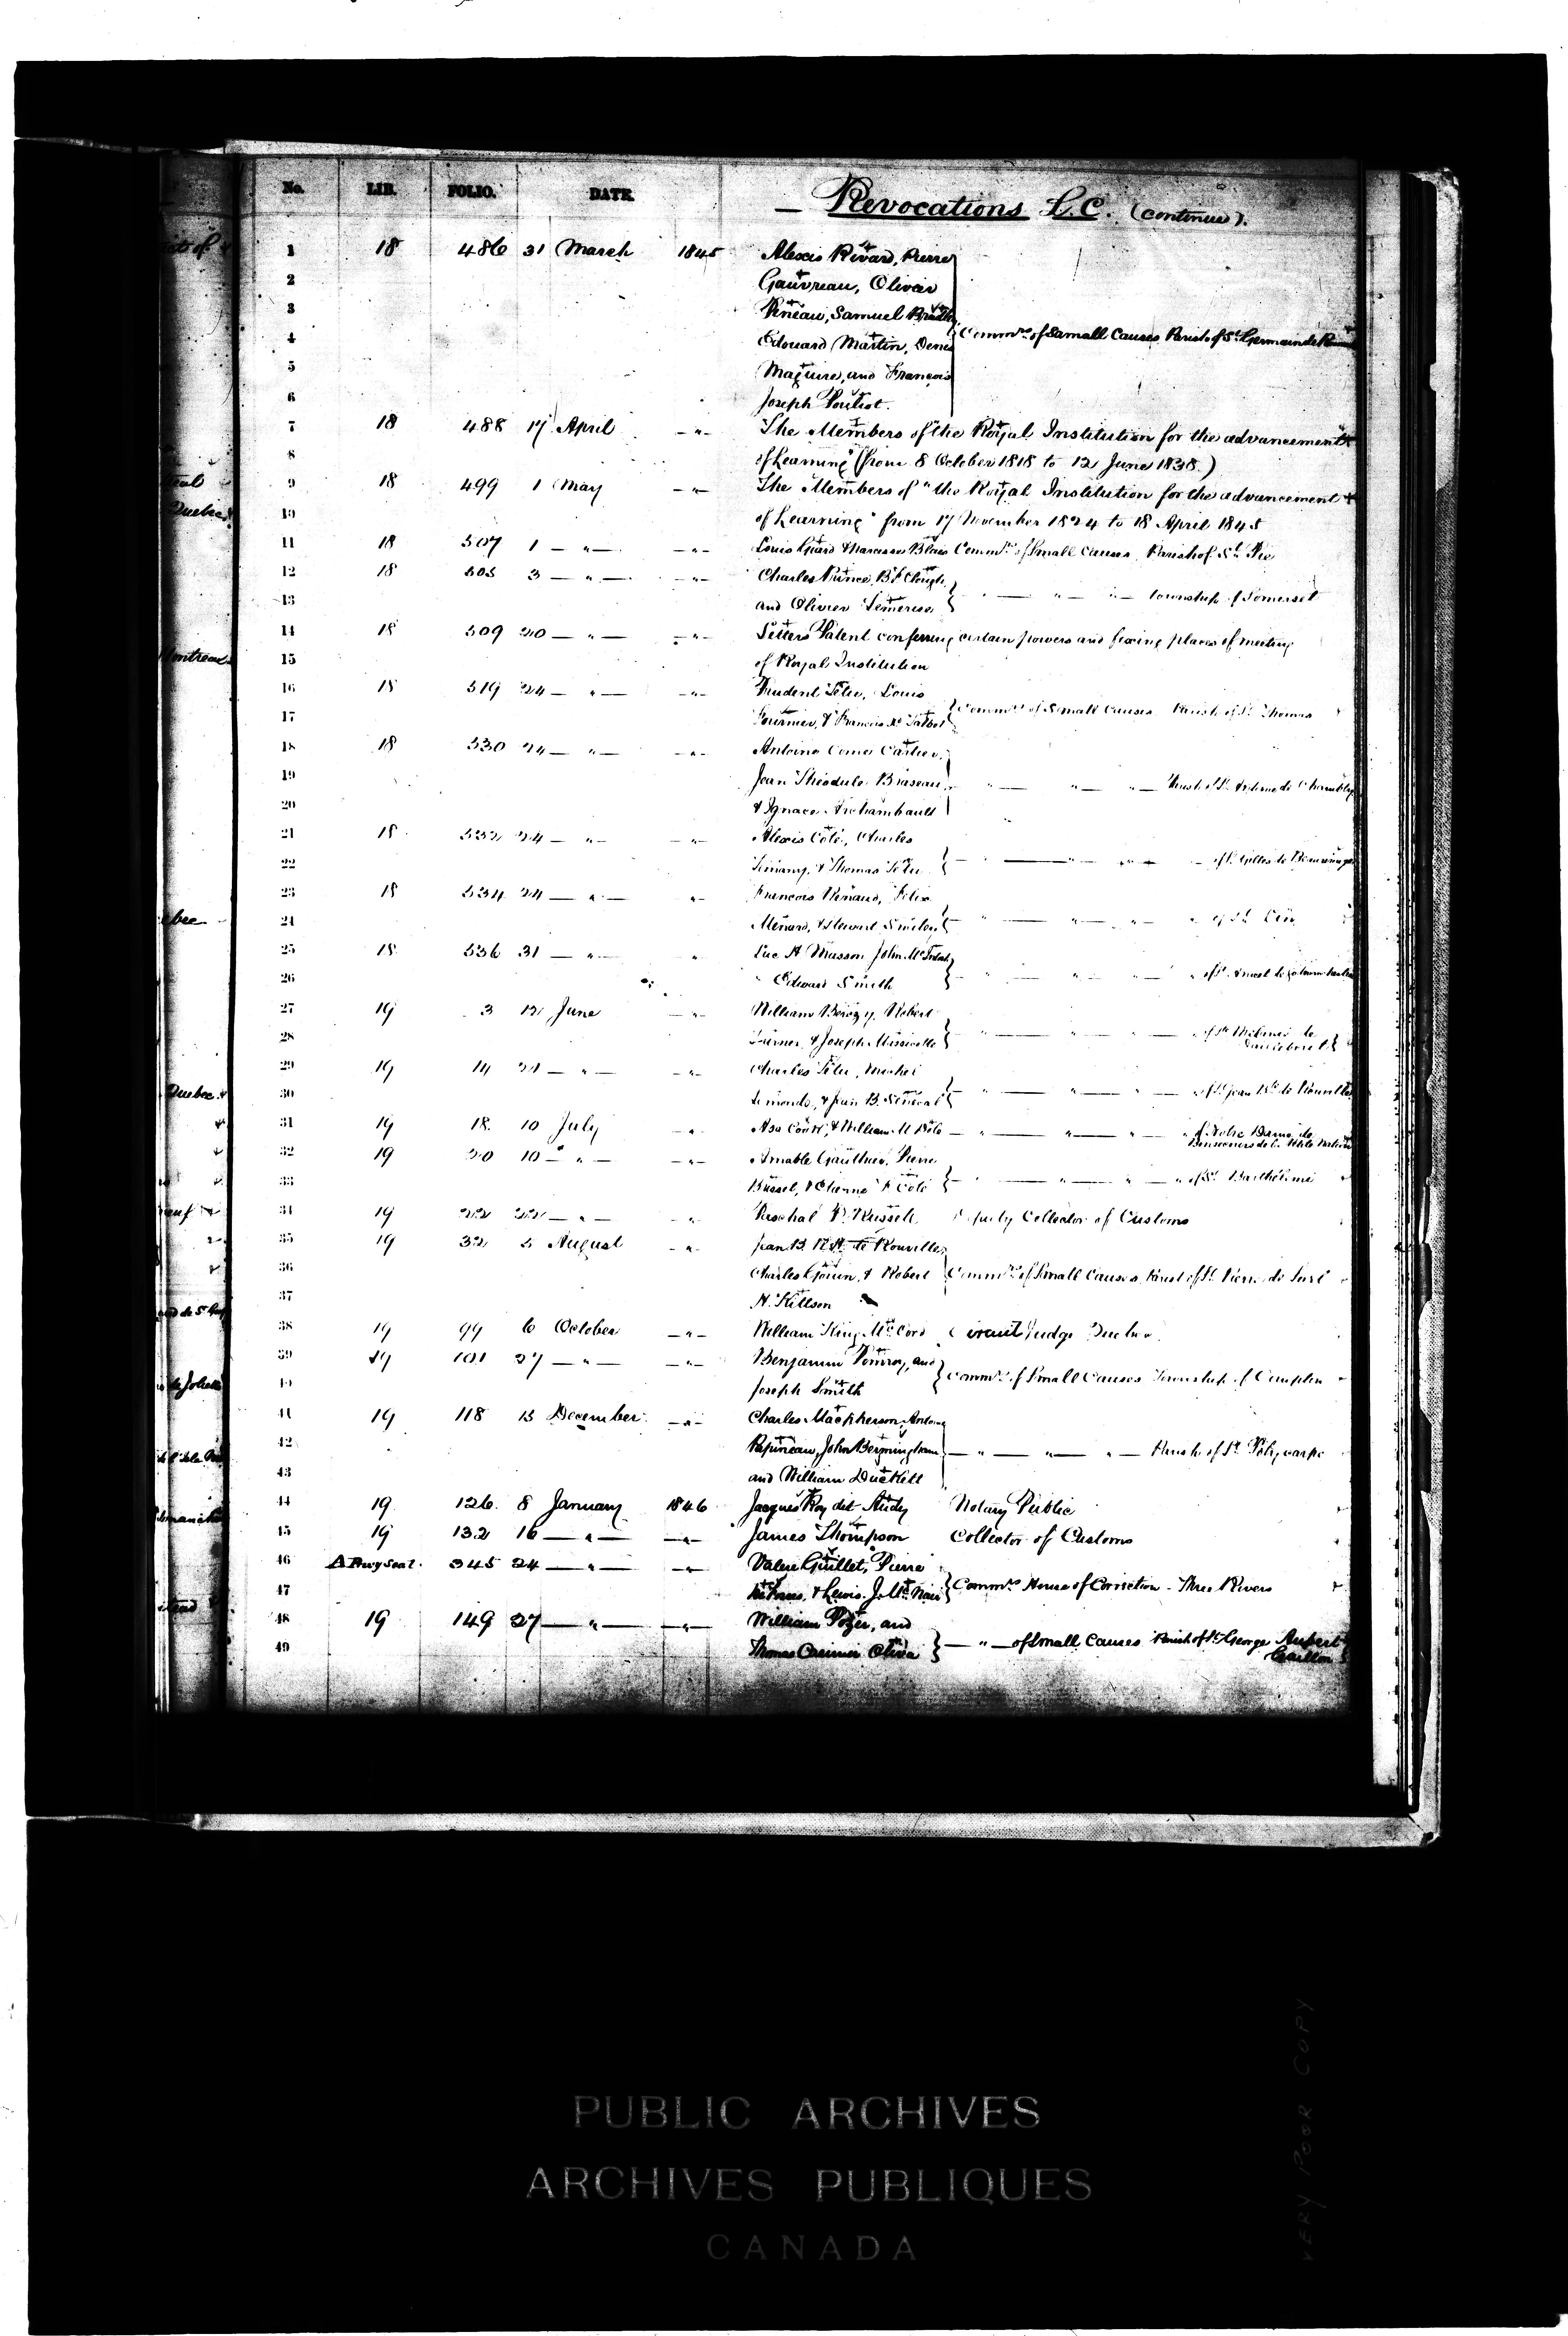 No. LIB. FOLIO. DATE. — Revocations L.C. (continued).
1 18 486 31 March 1845 Alexis Rivard, Pierre
2 Gauvreau, Olivier
3 Pineau, Samuel
4 Edouard Martin, Denis Commrs of Samall Causes Parish of St Germain de
5 Maguire, and François
6 Joseph Pouliot.
7 18 488 17 April — " — The Members of "the Royal Institution for the advancement
8 of Learning" (from 8 October 1818 to 12 June 1838.)
9 18 499 1 May — " — The Members of "the Royal Institution for the advancement
10 of Learning" from 17 November 1824 to 18 April 1845
11 18 507 1 — " — — " — Louis Guard & Narcisse Blais Commrs of Small Causes Parish of St Pie
12 18 505 3 — " — — " — Charles Prince, B F Clough
13 and Olivier — " — " — Township of Somerset
14 18 509 20 — " — — " — Letters Patent conferring certain powers and fixing places of meeting
15 of Royal Institution
16 18 519 24 — " — — " — Prudent Têtu, Louis
17 Fournier, & François Talbot Commrs of Small Causes Parish of St Thomas
18 18 530 24 — " — — " — Antoine Come Cartier,
19 Jean Théodule Braseau — " — " — Parish of St Antoine de Chambly
20 & Ignace Archambault
21 18 532 24 — " — — " — Alexis Coté, Charles
22 & Thomas Têtu — " — " — of St Gilles de
23 18 534 24 — " — " François Renaud, Felix
24 Menard, & Stewart — " — " — " of St
25 18 536 31 — " — " Luc H Masson John McIntosh
26 Edward Smith — " — " — " of St Anicet
27 19 3 12 June — " — William Berczy, Robert
28 Turner, & Joseph — " — " — of St
29 19 14 21 — " — — " — Charles Têtu, Michel
30 & Jean B. Sénécal — " — " — of St Jean Bte de Rouville
31 19 18 10 July — " — Asa Cooke, & William — " — " — " of Notre Dame de
Bonsecours de la Petite Nation
32 19 20 10 — " — — " — Amable Gauthier, Pierre
33 & Etienne Coté — " — " — " of St Barthélémi
34 19 22 22 — " — — " — Paschal Russell Deputy Collector of Customs
35 19 32 5 August — " — Jean B. R. H. de Rouville,
36 Charles & Robert Commrs of Small Causes, Parish of St Pierre de Sorel
37 H. Kittson
38 19 99 6 October — " — William King McCord Circuit Judge Quebec
39 19 101 27 — " — — " — Benjamin Pomroy, and
40 Joseph Smith Commrs of Small Causes Township of Compton
41 19 118 13 December — " — Charles Macpherson, Antoine
42 Papineau, John Bermingham — " — " — " — Parish of St Polycarpe
43 and William Duckett
44 19 126 8 January 1846 Jacques Roy dit Audy Notary Public
45 19 132 16 — " — — " — James Thompson Collector of Customs
46 A Privy Seal. 345 24 — " — — " — Valere Guillet, Pierre
47 & Lewis J. Commrs House of Correction - Three Rivers
48 19 149 27 — " — — " — William Pozer, and
49 Thomas Oliva — " — of Small Causes Parish of St George Aubert
Gaillon
Quebec
Montreal
Quebec
PUBLIC ARCHIVES
ARCHIVES PUBLIQUES
CANADA
VERY POOR COPY